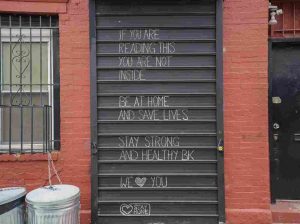 IF YOU ARE
READING THIS
YOU ARE NOT
INSIDE
BE AT HOME
AND SAVE LIVES
STAY STRONG
AND HEALTHY BK
WE ♥ YOU